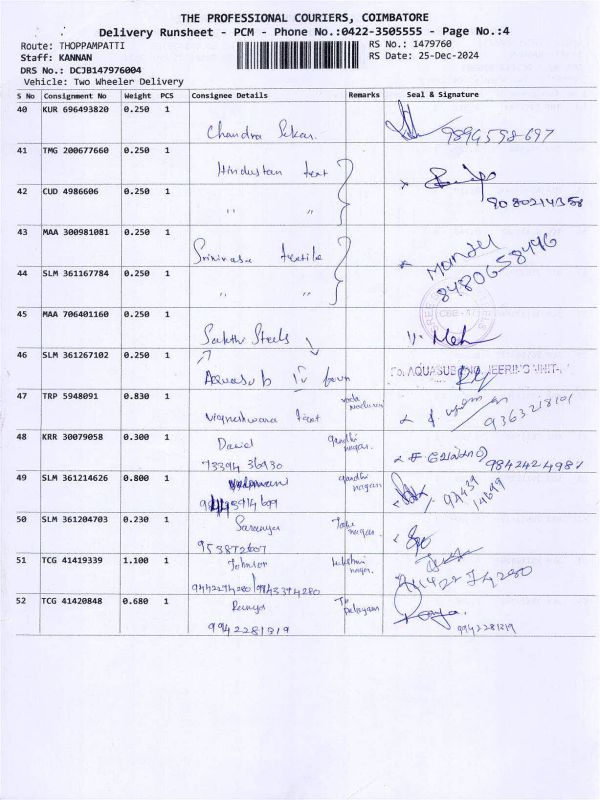 THE PROFESSIONAL COURIERS, COIMBATORE
Delivery Runsheet - PCM - Phone No.:0422-3505555 - Page No.:4
Route: THOPPAMPATTI
RS No.: 1479760
Staff: KANNAN
RS Date: 25-Dec-2024
DRS No.: DCJB147976004
Vehicle: Two Wheeler Delivery
S No Consignment No Weight PCS Consignee Details Remarks Seal & Signature
40 KUR 696493820 0.250 1
Chandra Sekar. 9894598-697
41 TMG 200677660 0.250 1
Hindustan text
42 CUD 4986606 0.250 1
" " 9080214358
43 MAA 300981081 0.250 1
Srinivasa textile
8480658496
44 SLM 361167784 0.250 1
" "
45 MAA 706401160 0.250 1
Sakthi Steels
46 SLM 361267102 0.250 1
Aquasub
For AQUASUB ENGINEERING UNIT-
47 TRP 5948091 0.830 1
Vigneshwara text 9363218101
48 KRR 30079058 0.300 1
David gandhi nagar.
73394 36930 9842424981
49 SLM 361214626 0.800 1
gandhi nagar
94439 14699
50 SLM 361204703 0.230 1
Saranya nagar.
953872607
51 TCG 41419339 1.100 1
Johnson lakshmi nagar.
9442274280/9943394280
52 TCG 41420848 0.680 1
palayam
9942281319 9942281319